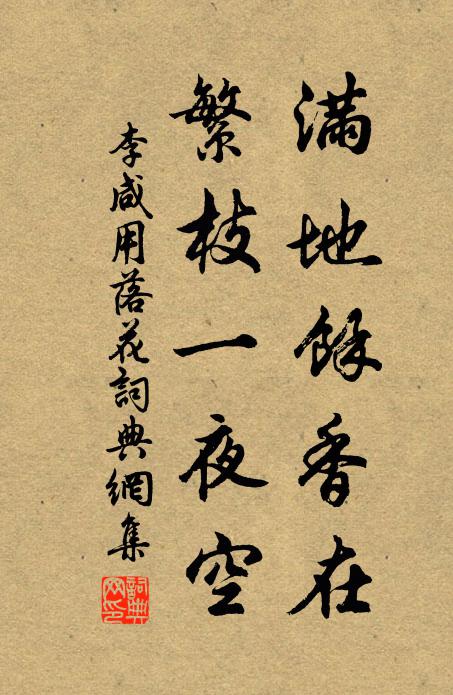 滿地餘香在
繁枝一夜空
李咸用落花詞典網集
詞典网印